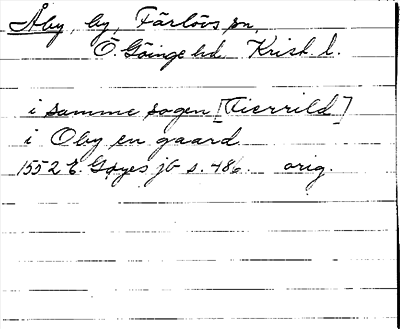 Åby, by, Färlövs sn,
Ö. Göinge hd Krist. l.
i samme sogen [Tierrild]
i Oby en gaard
1552 E. Gøyes jb s. 486. orig.